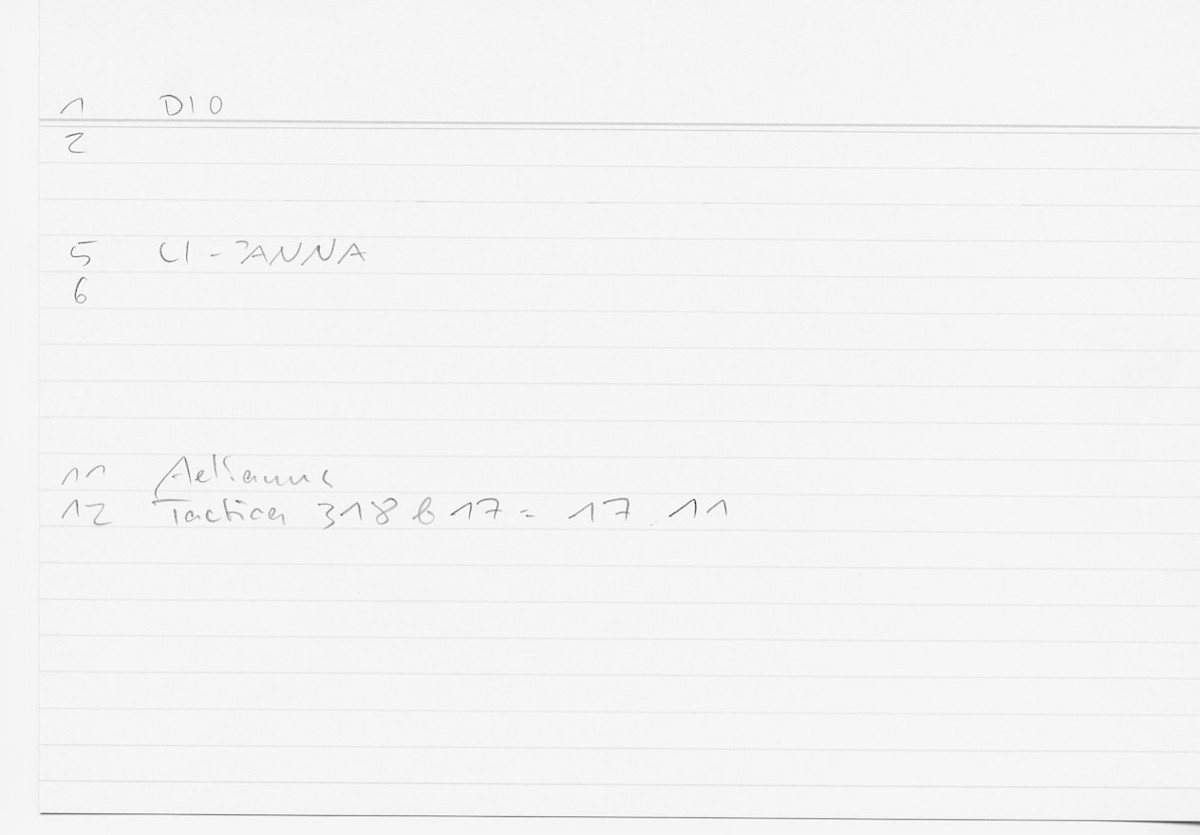 1 DIO
2
5 CI-ʔANNA
6
11 Aelianus
12 Tactica 318 b 17 = 17.11